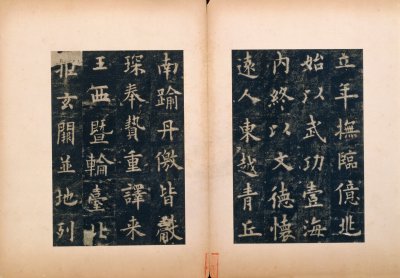 立年撫臨億兆
始以武功壹海
內終以文德懷
遠人東越青丘
南踰丹徼皆獻
琛奉贄重譯来
王西暨輪臺北
拒玄闕並地列